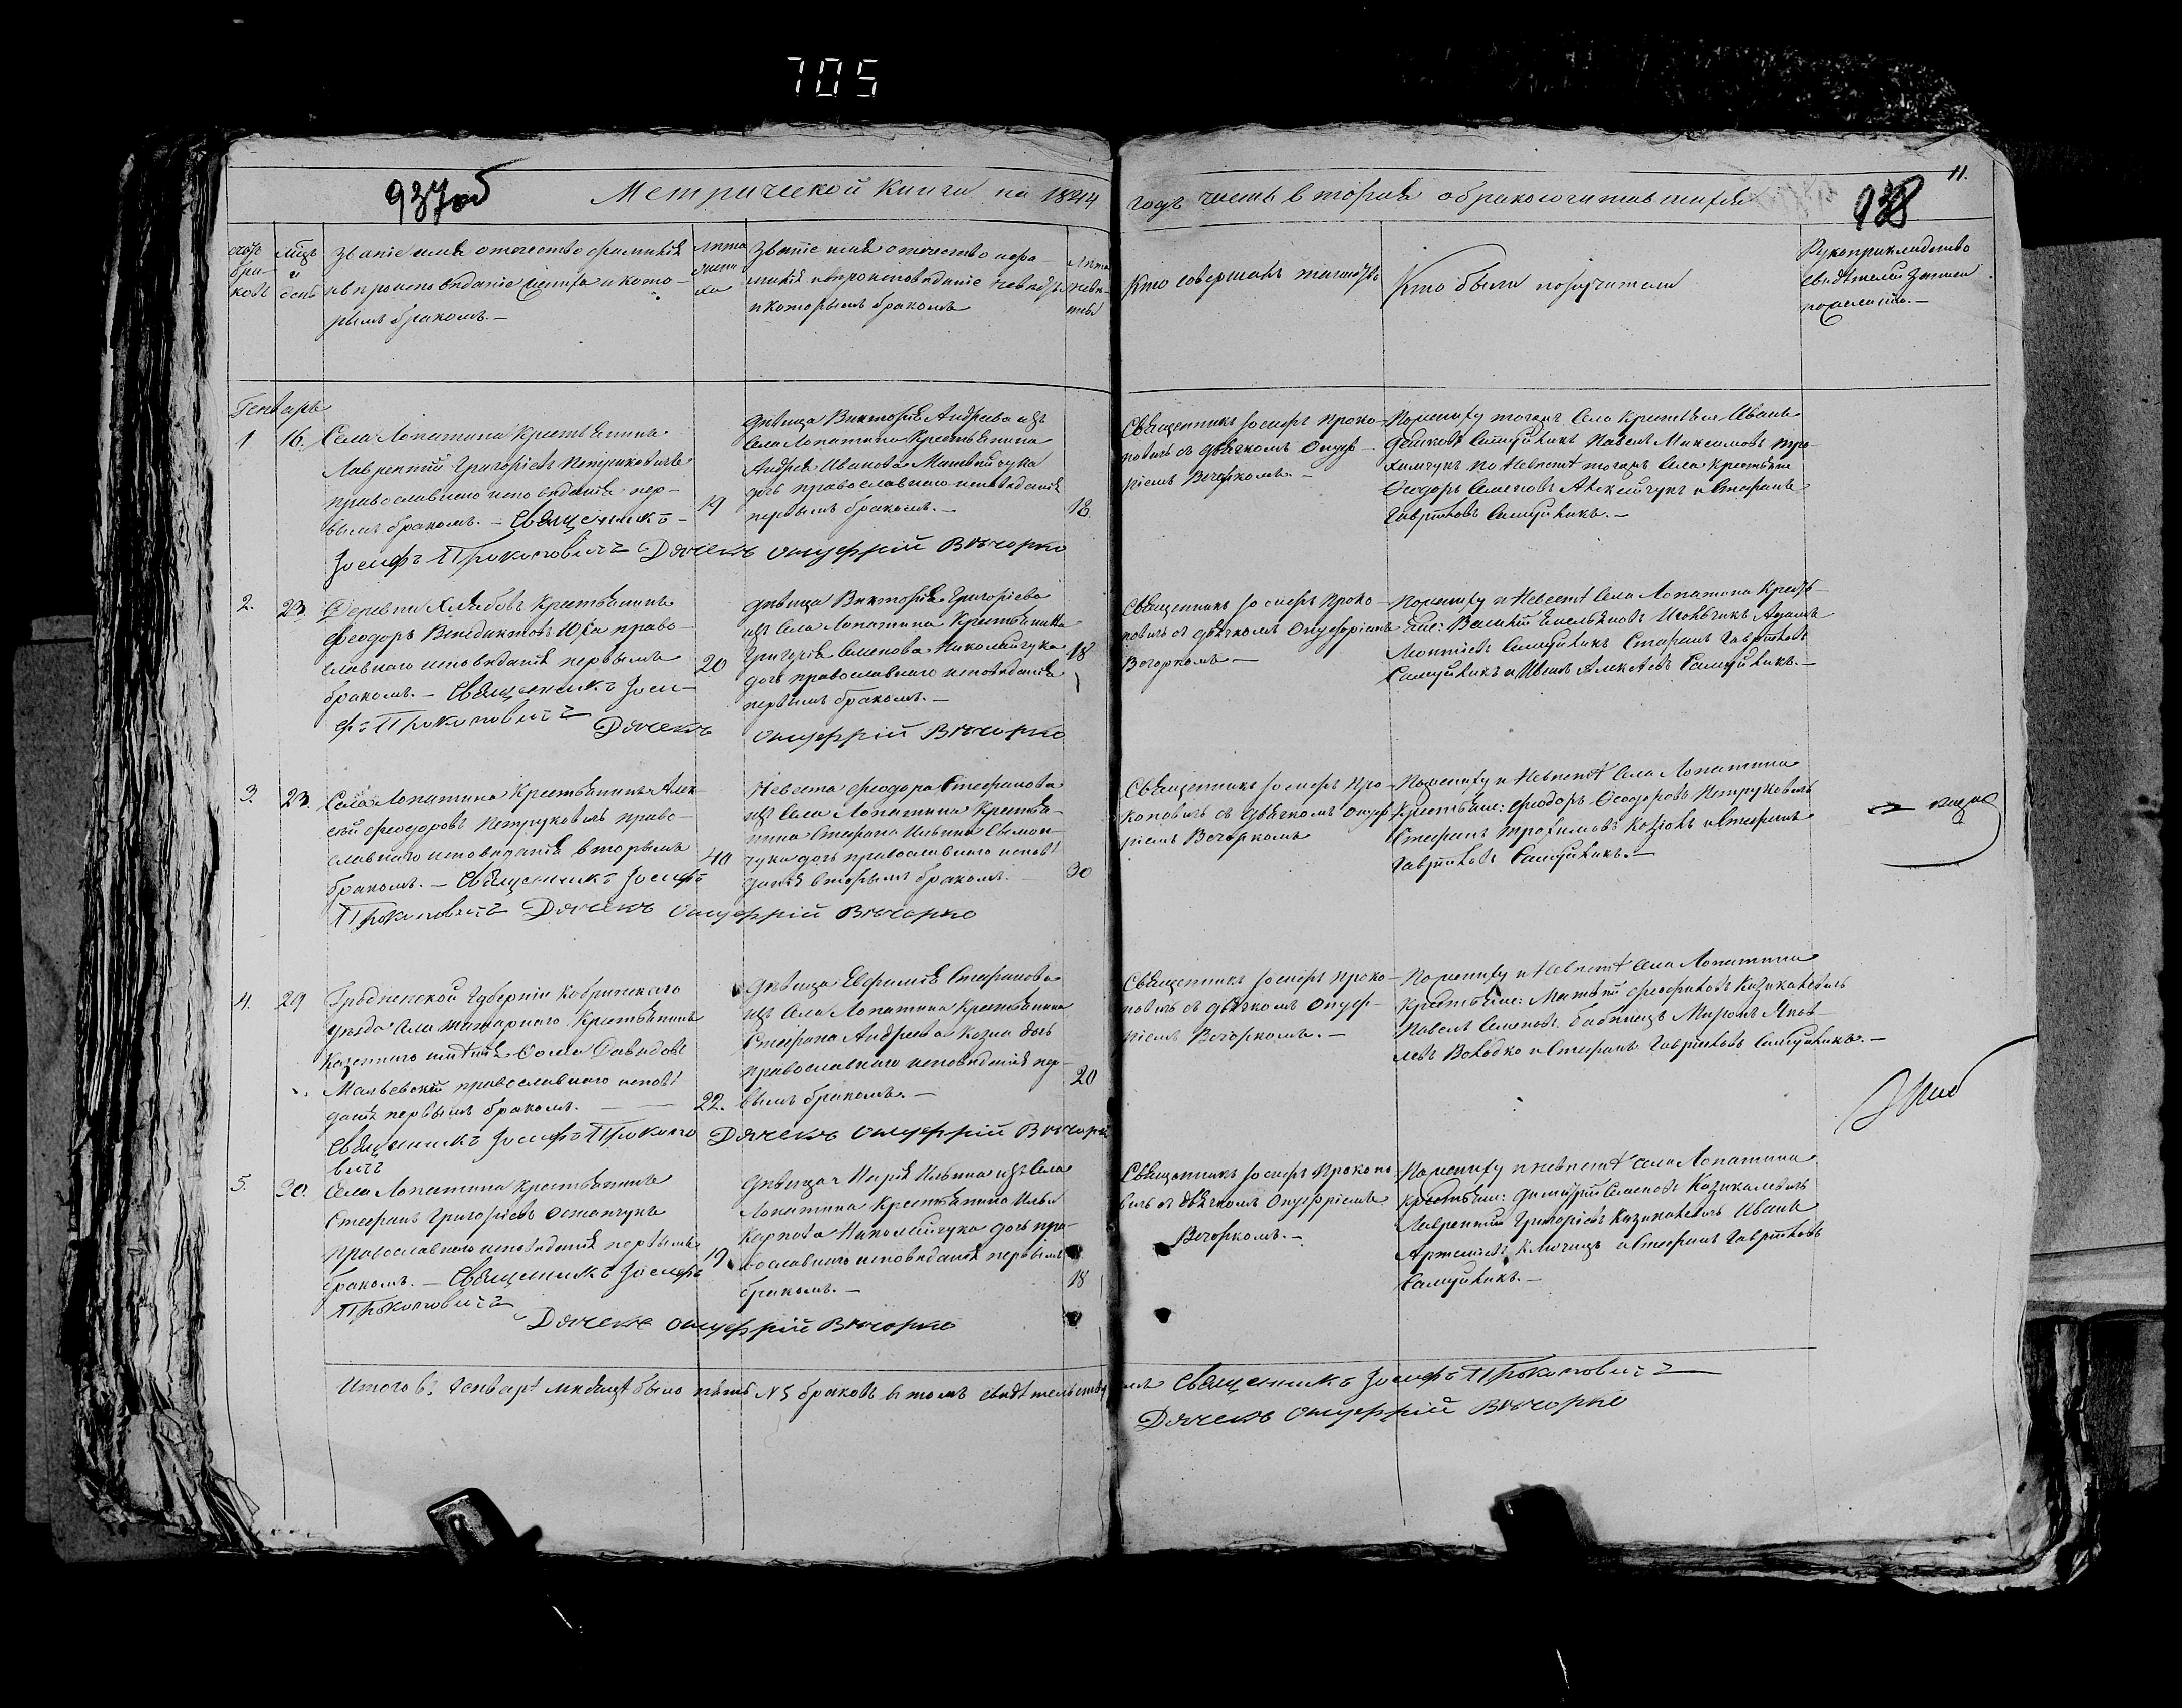 705
937об
Метрической книги на 1844
годъ часть вторая о бракосочитавшихся
938
11.
счотъ браковъ
мцъ и день
Званіе имя отечество фамилія
и вѣроисповѣданіе жениха и кото-
рымъ бракомъ. —
лѣта жениха
Званіе имя отечество и фа-
милія и вѣроисповѣданіе невѣсты
и которымъ бракомъ
лѣта невѣсты
Кто совершалъ таинство
Кто были поручители
Рукоприкладство
свидѣтелей записи
по желанію. —
Генварь
1. 16. Села Лопатина Крестьянинъ
Лаврентій Григоріевъ Петриковичъ
православнаго исповѣданія пер-
вымъ бракомъ. — Священникъ
19
Іосифъ Прокоповичъ Дячекъ Онуфрій Вечорко
дѣвица Викторія Андреева изъ
Села Лопатина Крестьянина
Андрея Иванова Матвейчука
дочь православнаго исповѣданія
первымъ бракомъ. —
18.
Священникъ Іосифъ Проко-
повичъ съ дьячкомъ Онуф-
ріемъ Вечоркомъ. —
По жениху тогожъ Села Крестьяне Иванъ
Самуйликъ Павелъ Максимовъ Тро-
химчукъ по Невѣстѣ тогожъ Села Крестьяне
Феодоръ Семеновъ Алексейчукъ и Стефанъ
Гавриловъ Самуйликъ. —
2. 23. Деревни Хлябовъ Крестьянинъ
Феодоръ Венедиктовъ Юха право-
славнаго исповѣданія первымъ
20
бракомъ. — Священникъ Іоси-
фъ Прокоповичъ Дячекъ Онуфрій Вечорко
дѣвица Викторія Григоріева
изъ Села Лопатина Крестьянина
Григорія Семенова Николайчука
18
дочь православнаго исповѣданія
первымъ бракомъ. —
Священникъ Іосифъ Проко-
повичъ съ дьячкомъ Онуфріемъ
Вечоркомъ —
По жениху и Невестѣ Села Лопатина Кресть-
яне: Василій Емельяновъ Адамъ
Самуйликъ Стефанъ Гавриловъ
Самуйликъ и Иванъ Алексѣевъ Самуйликъ. —
3. 23. Села Лопатина Крестьянинъ Алек-
сей Феодоровъ Петруковичъ право-
славнаго исповѣданія вторымъ
40
бракомъ. — Священникъ Іосифъ
Прокоповичъ Дячекъ Онуфрій Вечорко
Невеста Феодора Стефанова
изъ Села Лопатина Крестья-
нина Стефана Ильина
чука дочь православнаго исповѣ-
данія вторымъ бракомъ. —
30
Священникъ Іосифъ Про-
коповичъ съ дьячкомъ Онуф-
ріемъ Вечоркомъ
По жениху и Невѣстѣ Села Лопатина
Крестьяне: Феодоръ Феодоровъ Петруковичъ
Стефанъ Трохимовъ Козіолъ и Стефанъ
Гавриловъ Самуйликъ. —
4. 29 Гродненской Губерніи Кобринского
уѣзда Села Крестьянинъ
Казеннаго имѣнія Фома Давидовъ
Мальевскій православнаго исповѣ-
данія первымъ бракомъ. —
22.
Священникъ Іосифъ Прокопо Дячекъ Онуфрій Вечорко
вичъ
дѣвица Евфимія Стефанова
изъ Села Лопатина Крестьянина
Стефана Андреева Козла дочь
православнаго исповѣданія пер-
20
вымъ бракомъ. —
Священникъ Іосифъ Проко-
повичъ съ дьячкомъ Онуф-
ріемъ Вечоркомъ. —
По жениху и Невѣстѣ Села Лопатина
Крестьяне: Матвей Феофиловъ Казикаловичъ
Павелъ Семеновъ Миронъ Яков-
левъ Володко и Стефанъ Гавриловъ Самуйликъ. —
5. 30. Села Лопатина Крестьянинъ
Стефанъ Григоріевъ Остапчукъ
Православнаго исповѣданія первымъ
19
бракомъ. — Священникъ Іосифъ
Прокоповичъ Дячекъ Онуфрій Вечорко
дѣвица Марія Ильина изъ Села
Лопатина Крестьянина Ильи
Карпова Николайчука дочь пра-
вославнаго исповѣданія первымъ
18
бракомъ. —
Священникъ Іосифъ Прокопо-
вичъ съ дьячкомъ Онуфріемъ
Вечоркомъ. —
По жениху и невѣстѣ Села Лопатина
Крестьяне: Димитрій Семеновъ Казикаловичъ
Лаврентій Григоріевъ Казикаловичъ Иванъ
Артемовъ и Стефанъ Гавриловъ
Самуйликъ. —
Итого въ Генварѣ месяцѣ было пять №5 браковъ въ томъ свидѣтельствуемъ Священникъ Іосифъ Прокоповичъ
Дячекъ Онуфрій Вечорко